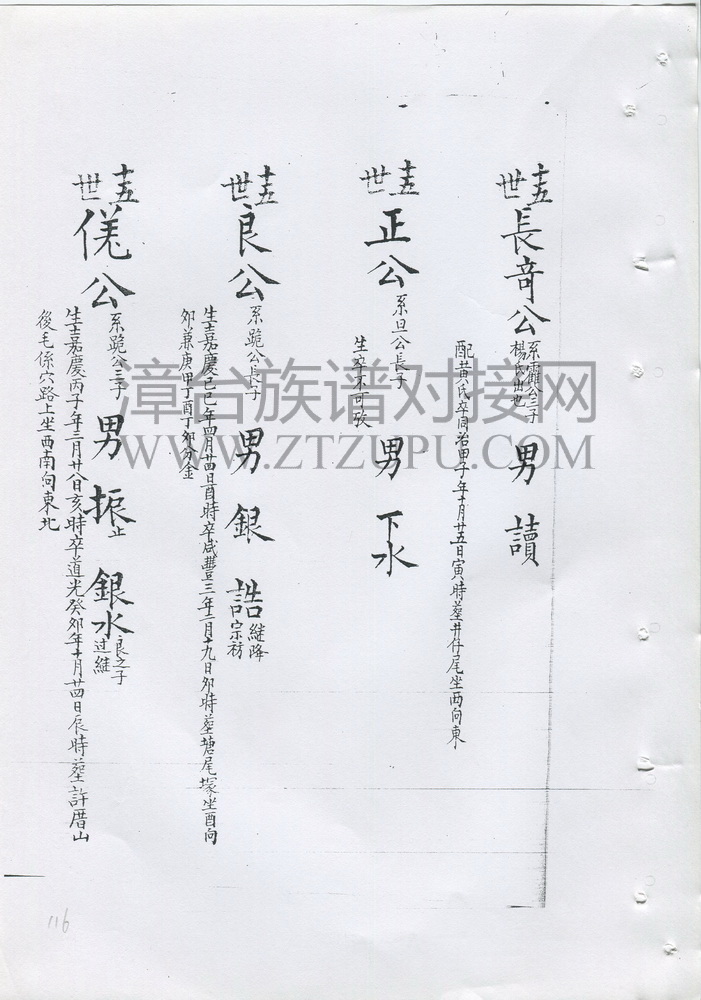 十五世長奇公系霨公三子
楊氏出也 男 讀
配黄氏卒同治甲子年十月廿五日寅時葬井仔尾坐西向東
十五世正公系旦公長子 男 下水
生卒不可攷
十五世良公系跪公長子 男 銀 誥継降
宗祊
生于嘉慶己巳年四月廿四日酉時卒咸豐三年二月十九日卯時葬塘尾塚坐酉向
卯兼庚甲丁酉丁卯分金
十五世 公系跪公三子 男 振止 銀水良之子
过継
生于嘉慶丙子年三月廿八日亥時卒道光癸卯年十月廿四日辰時葬許厝山
後毛係穴路上坐西南向東北
漳台族谱对接网
WWW.ZTZUPU.COM
116